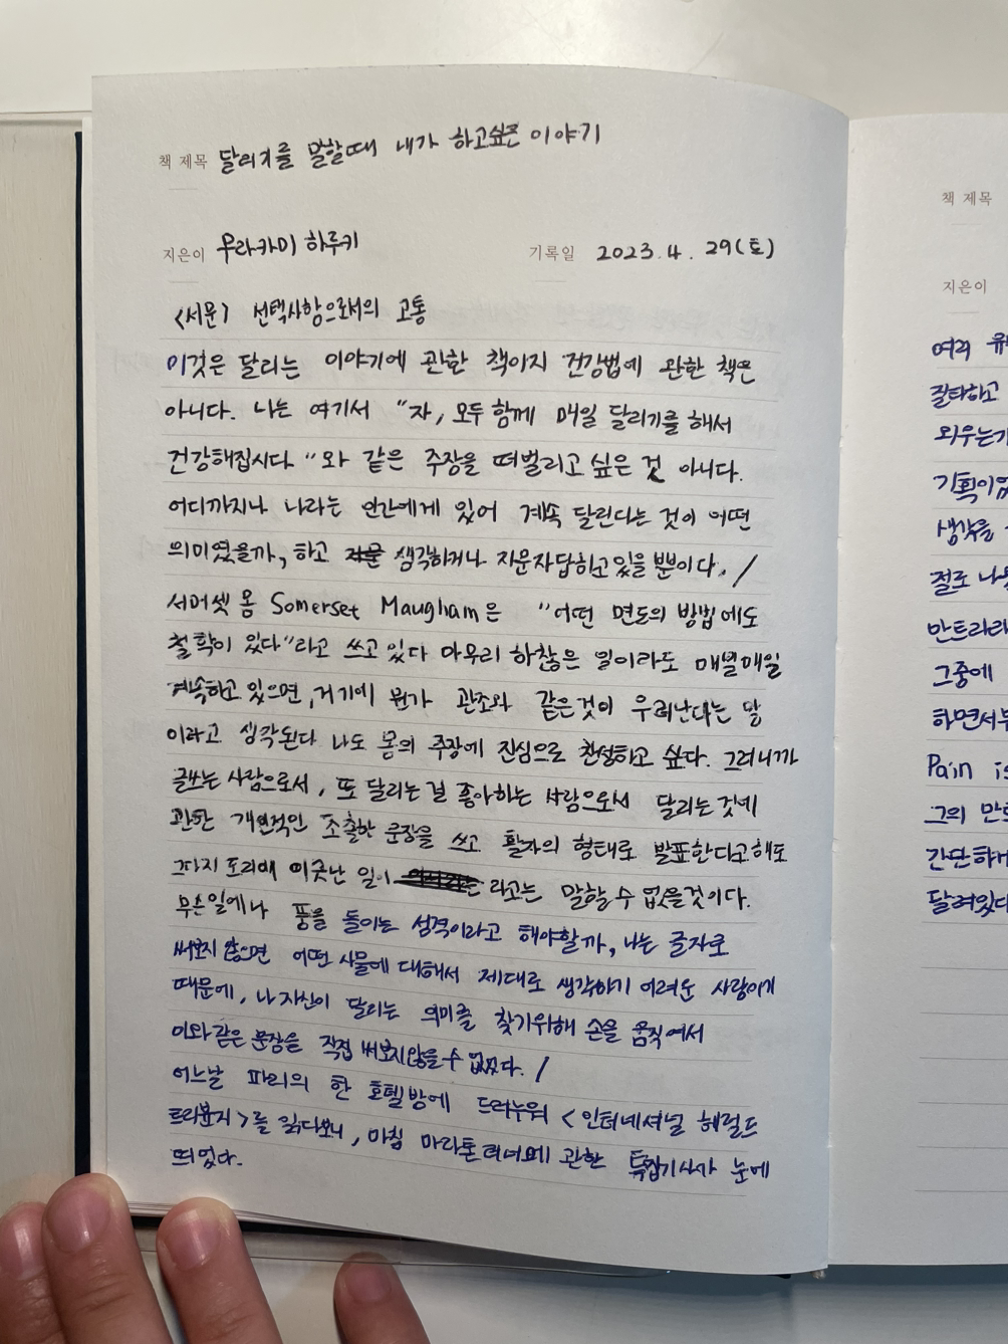 책 제목 달리기를 말할때 내가 하고싶은 이야기
지은이 무라카미 하루키 기록일 2023.4.29(토)
<서문> 선택사항으로서의 고통
이것은 달리는 이야기에 관한 책이지 건강법에 관한 책은
아니다. 나는 여기서 "자, 모두 함께 매일 달리기를 해서
건강해집시다"와 같은 주장을 떠벌리고 싶은 것 아니다.
어디까지나 나라는 인간에게 있어 계속 달린다는 것이 어떤
의미였을까, 하고 생각하거나 자문자답하고 있을 뿐이다. /
서머셋 몸 Somerset Maugham은 "어떤 면도의 방법에도
철학이 있다"라고 쓰고 있다 아무리 하찮은 일이라도 매일매일
계속하고 있으면, 거기에 뭔가 관조와 같은것이 우러난다는 말
이라고 생각된다 나도 몸의 주장에 진심으로 찬성하고 싶다. 그러니까
글쓰는 사람으로서, 또 달리는 걸 좋아하는 사람으로서 달리는것에
관한 개인적인 조촐한 문장을 쓰고 활자의 형태로 발표한다고해도
그다지 도리에 어긋난 일이 라고는 말할 수 없을것이다.
무슨일에나 품을 들이는 성격이라고 해야할까, 나는 글자로
써보지 않으면 어떤 사물에 대해서 제대로 생각하기 어려운 사람이기
때문에, 나 자신이 달리는 의미를 찾기위해 손을 움직여서
이와같은 문장을 직접 써보지않을수 없었다. /
어느날 파리의 한 호텔방에 드러누워 <인터네셔널 헤럴드
트리뷴지>를 읽다보니, 마침 마라톤 러너에 관한 특집기사가 눈에
띄었다.
책 제목
지은이
여러
잘타하고
외우는가
생각을
절로
만트라라
그중에
하면서
Pain is
그의
간단하게